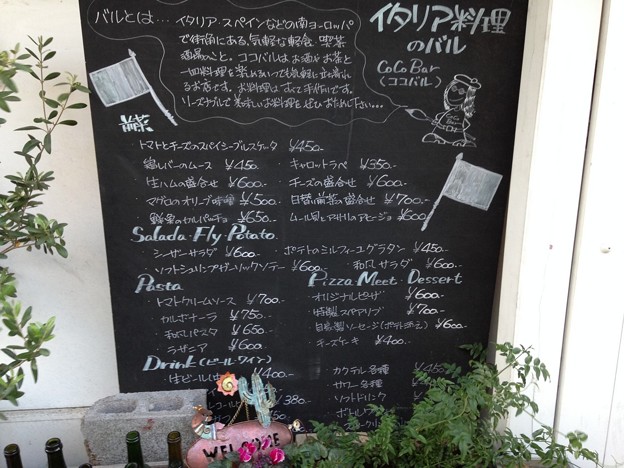 バルとは… イタリア・スペインなどの南ヨーロッパ
で街角にある、気軽な軽食 喫茶
酒場のこと。ココバルは お酒や お茶と
一皿料理を楽しめるいつでも気軽に立ち寄れ
るお店です。お料理は すべて手作りです。
リーズナブルで美味しいお料理をぜひおためし下さい…
イタリア料理
のバル
CoCo Bar
(ココバル)
前菜
トマトとチーズのスパイシーブルスケッタ ¥450.-
・鶏レバーのムース ¥450.
・キャロットラペ ¥350.-
・生ハムの盛合せ ¥600.-
・チーズの盛合せ ¥600.-
・マグロのオリーブ味噌 ¥500
・日替り前菜の盛合せ ¥700.-
・鮮魚のカルパッチョ ¥650.-
・ムール貝とアサリのアヒージョ ¥600
Salada・Fly・Potato
・シーザーサラダ ¥600.-
・ポテトのミルフィーユグラタン ¥450.-
・ソフトシュリンプガーリックソテー ¥600.-
・和風サラダ ¥600.-
Pasta
・トマトクリームソース ¥700.-
・カルボナーラ ¥750.-
・和風パスタ ¥650.-
・ラザニア ¥600.-
Pizza・Meet・Dessert
・オリジナルピザ ¥600.-
・特製スペアリブ ¥700.-
・自家製ソーセージ(ポテト添え) ¥600.-
・チーズケーキ ¥400.-
Drink(ビール・ワイン)
・生ビール ¥400.-
¥380.-
・カクテル各種 ¥450
・サワー各種
・ソフトドリンク
・ボトルワイン
WELCOME